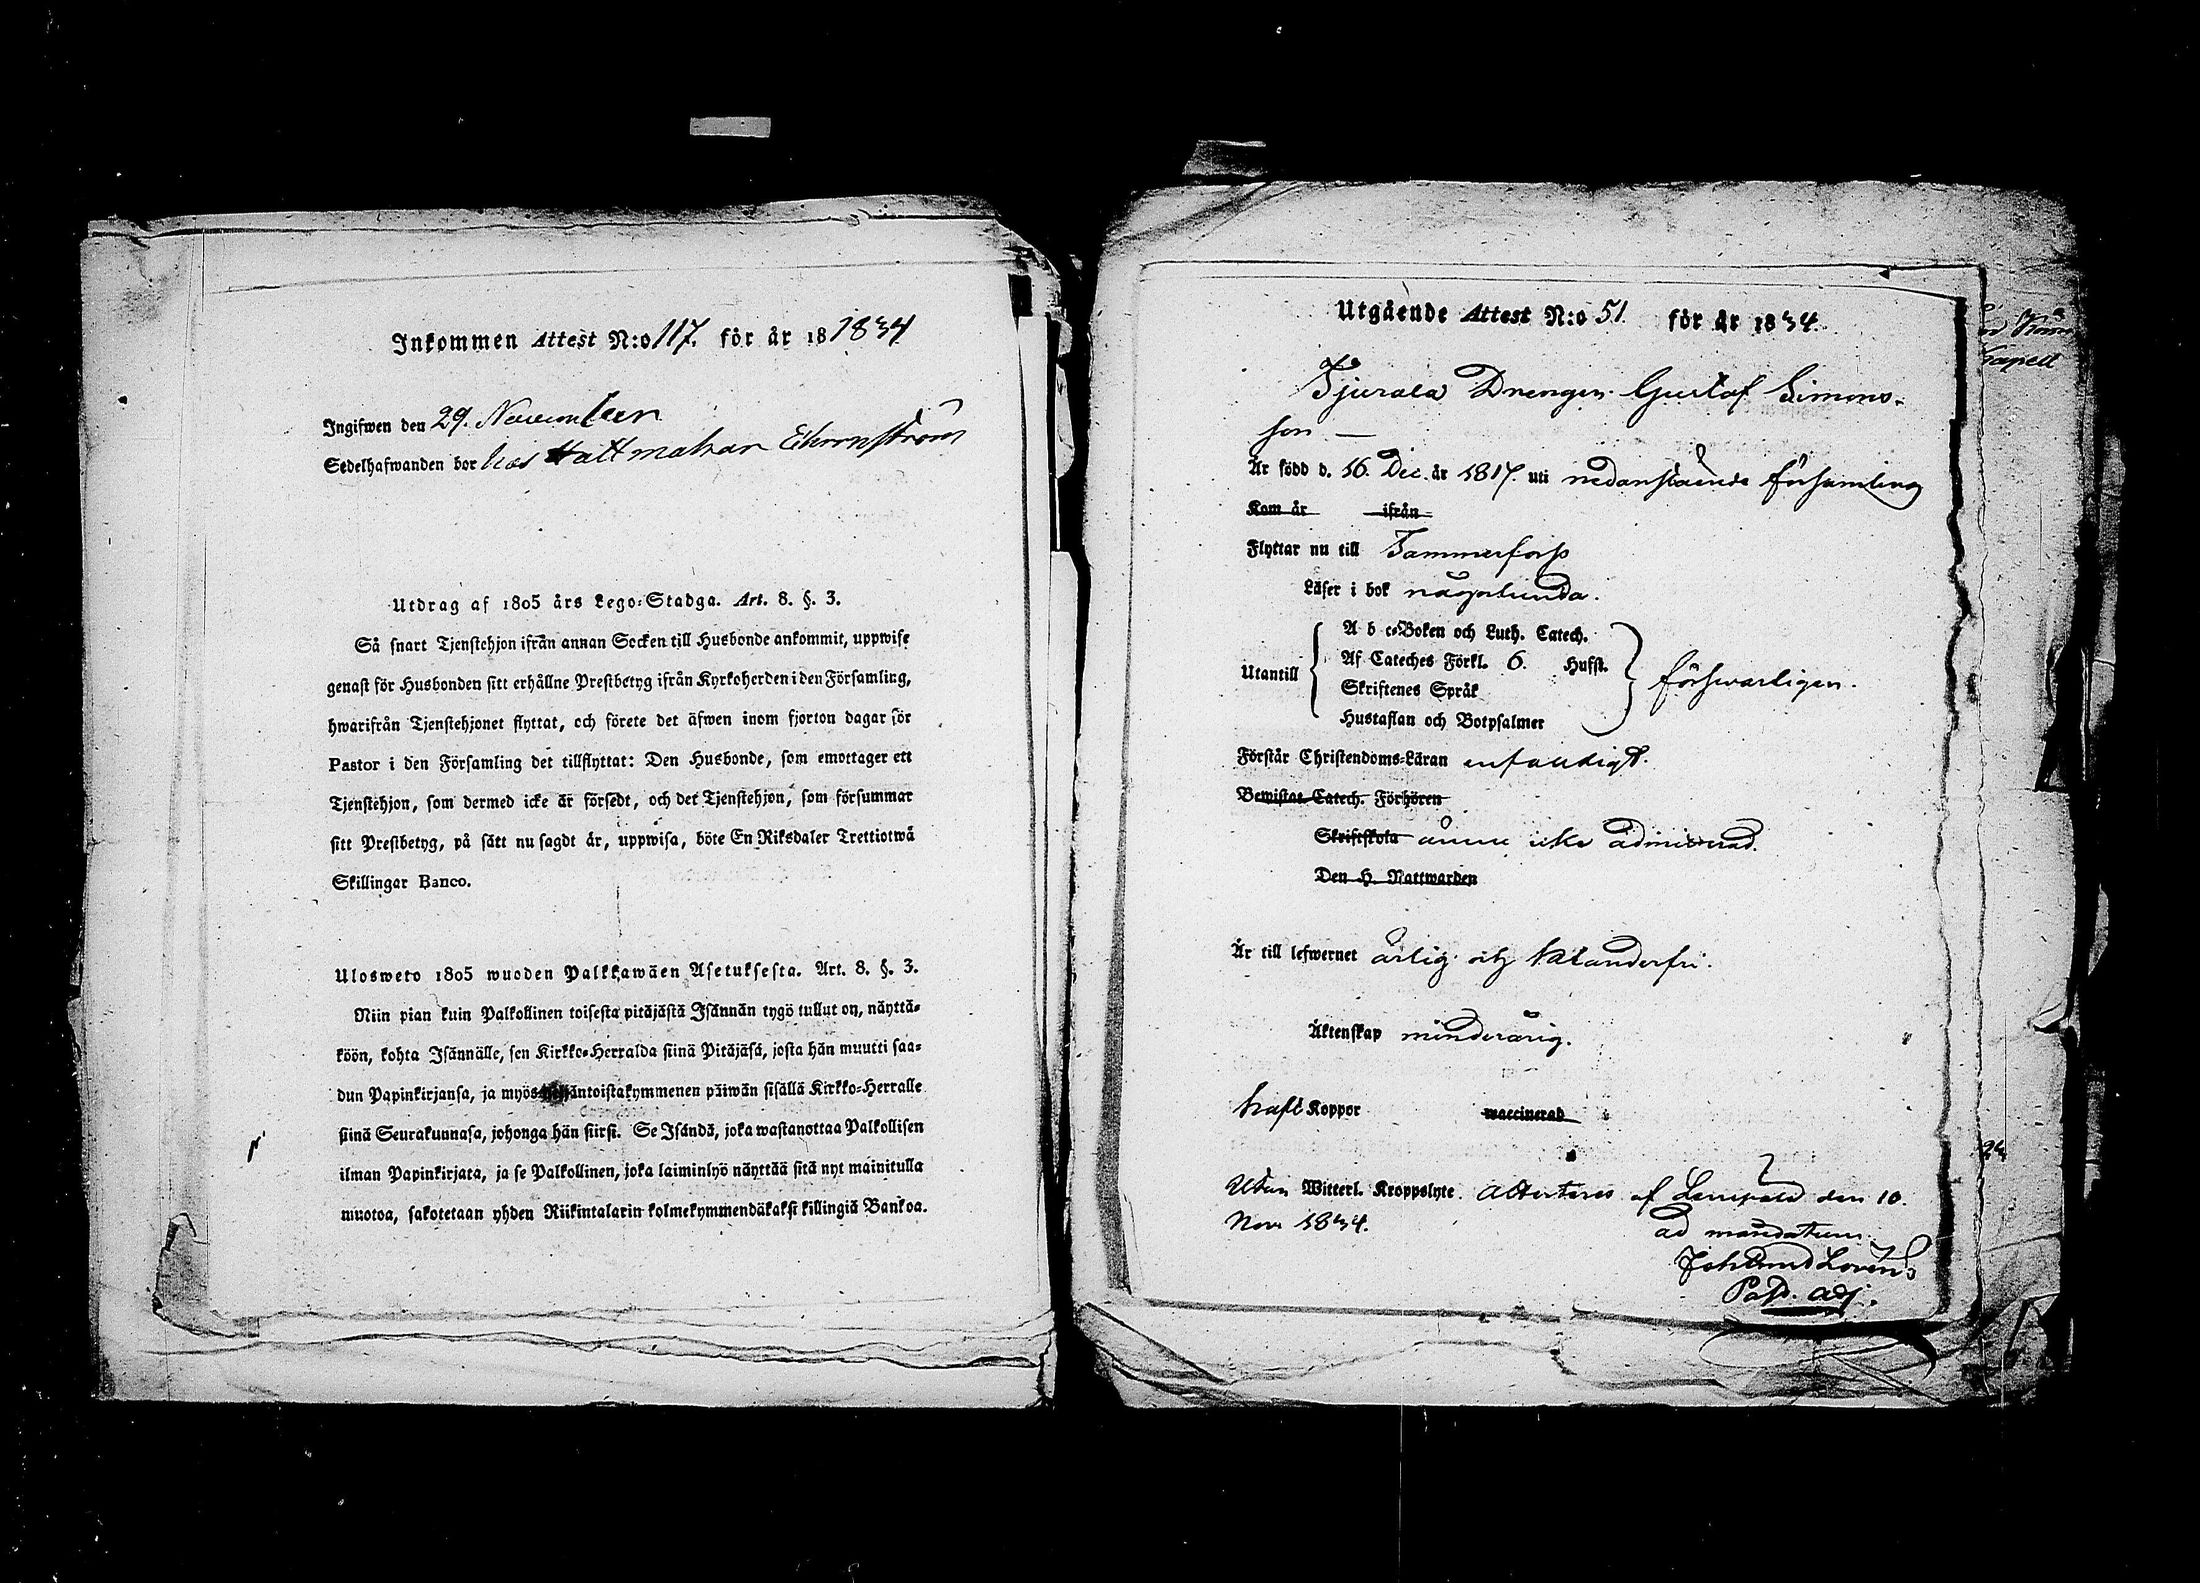 Inkommen Attest N:o 117. för år 18 1834
Ingifwen den 29. November
Sedelhafwanden bor hos Hattmakar Ekornström
Utdrag af 1805 års Lego-Stadga. Art. 8. §. 3.
Så snart Tjenstehjon ifrån annan Socken till Husbonde ankommit, uppwise
genast för Husbonden sitt erhållne Prestbetyg ifrån Kyrkoherden i den Församling,
hwarifrån Tjenstehjonet flyttat, och förete det äfwen inom fjorton dagar för
Pastor i den Församling det tillflyttat: Den Husbonde, som emottager ett
Tjenstehjon, som dermed icke är försedt, och det Tjenstehjon, som försummar
sitt Prestbetyg, på sätt nu sagdt är, uppwisa, böte En Riksdaler Trettiotwå
Skillingar Banco.
Ulosweto 1805 wuoden Palkkawäen Asetuksesta. Art. 8. §. 3.
Niin pian kuin Palkollinen toisesta pitäjästä Isännän tygö tullut on, näyttä-
köön, kohta Isännälle, sen Kirkko-Herralda siinä Pitäjäsä, josta hän muutti saa-
dun Papinkirjansa, ja myös neljäntoistakymmenen päiwän sisällä Kirkko-Herralle
siinä Seurakunnasa, johonga hän siirsi. Se Isändä, joka wastanottaa Palkollisen
ilman Papinkirjata, ja se Palkollinen, joka laiminlyö näyttää sitä nyt mainitulla
muotoa, sakotetaan yhden Riikintalarin kolmekymmendäkaksi killingiä Bankoa.
Utgående Attest N:o 51. för år 1834.
Tjurala Drengen Gustaf Simons-
son —
Är född d. 16. Dec. år 1817. uti nedanstående församling
Kom år ifrån
Flyttar nu till Tammerfors
Läser i bok någorlunda.
A b c-Boken och Luth. Catech.
Utantill Af Cateches Förkl. 6. Hufst. försvarligen.
Skriftenes Språk
Hustaflan och Botpsalmer
Förstår Christendoms-Läran enfaldigt.
Bewistat Catech. Förhören
Skriftskola ännu icke admitterad.
Den H. Nattwarden
Är till lefwernet ärlig och klanderfri.
Äktenskap minderårig.
haft Koppor waccinerad
Utan Witterl. Kroppslyte. Attesteras af Lempälä den 10.
Nov. 1834. ad mandatum
Past. Adj.